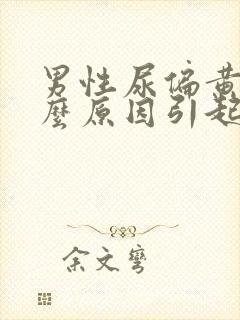 男性尿偏黄
麼原因引起
余文彎